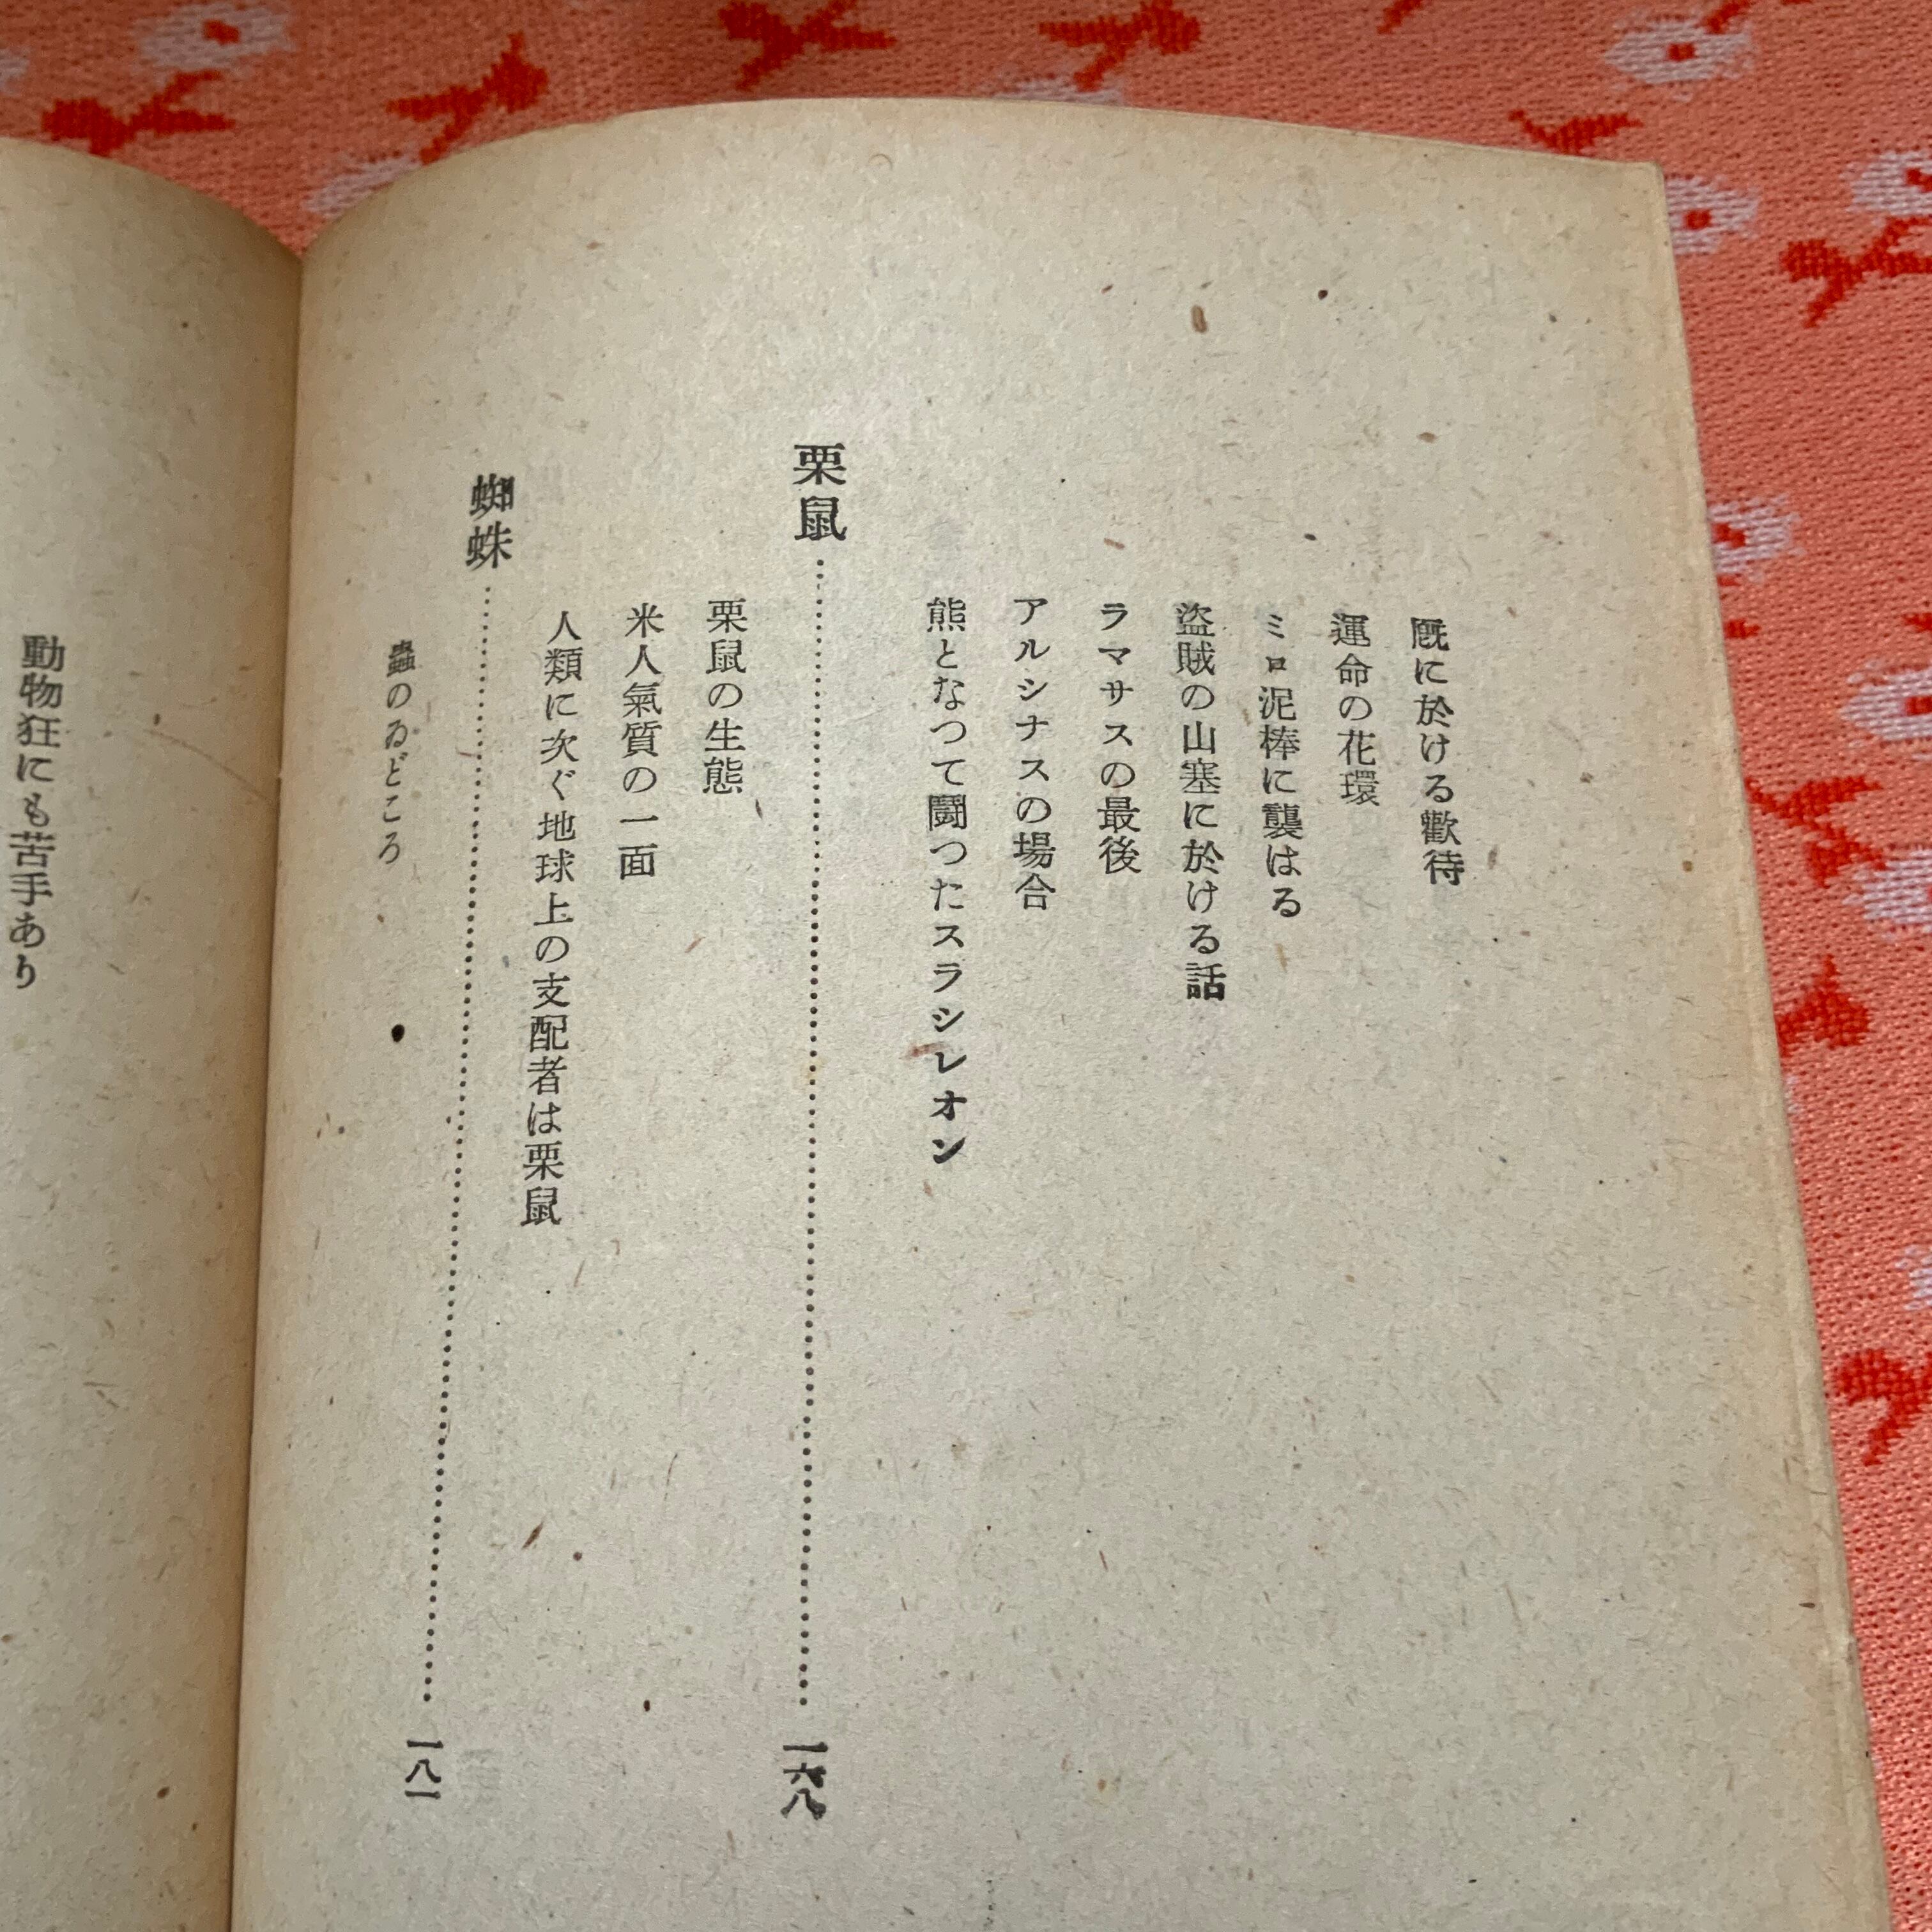 厩に於ける歡待
運命の花環
ミロ泥棒に襲はる
盜賊の山塞に於ける話
ラマサスの最後
アルシナスの場合
熊となつて鬪つたスラシレオン
栗鼠…………一六八
栗鼠の生態
米人氣質の一面
人類に次ぐ地球上の支配者は栗鼠
蜘蛛…………一八一
蟲のゐどころ
動物狂にも苦手あり